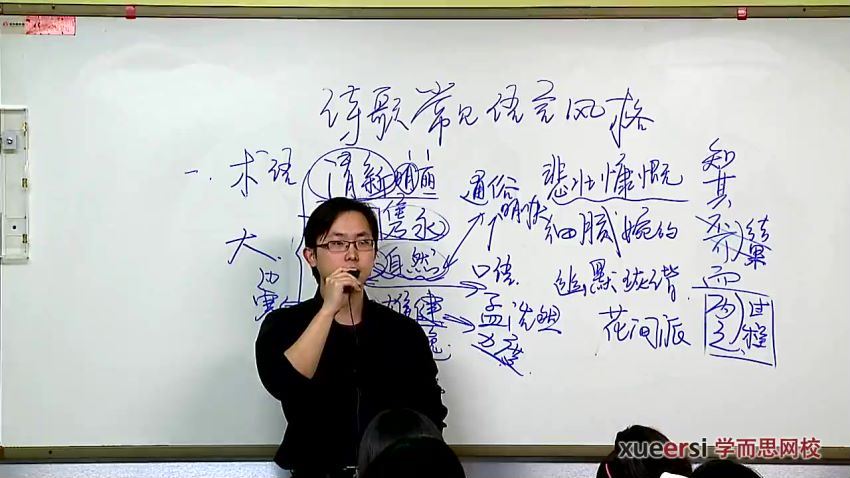 诗歌常见语言风格
一. 术语
清新明丽
隽永
自然
雄健
大
边塞
通俗
明快
口语
孟浩然
悲壮慷慨
细腻婉约
幽默诙谐
花间派
知其不可而为之
结果
过程
xueersi 学而思网校